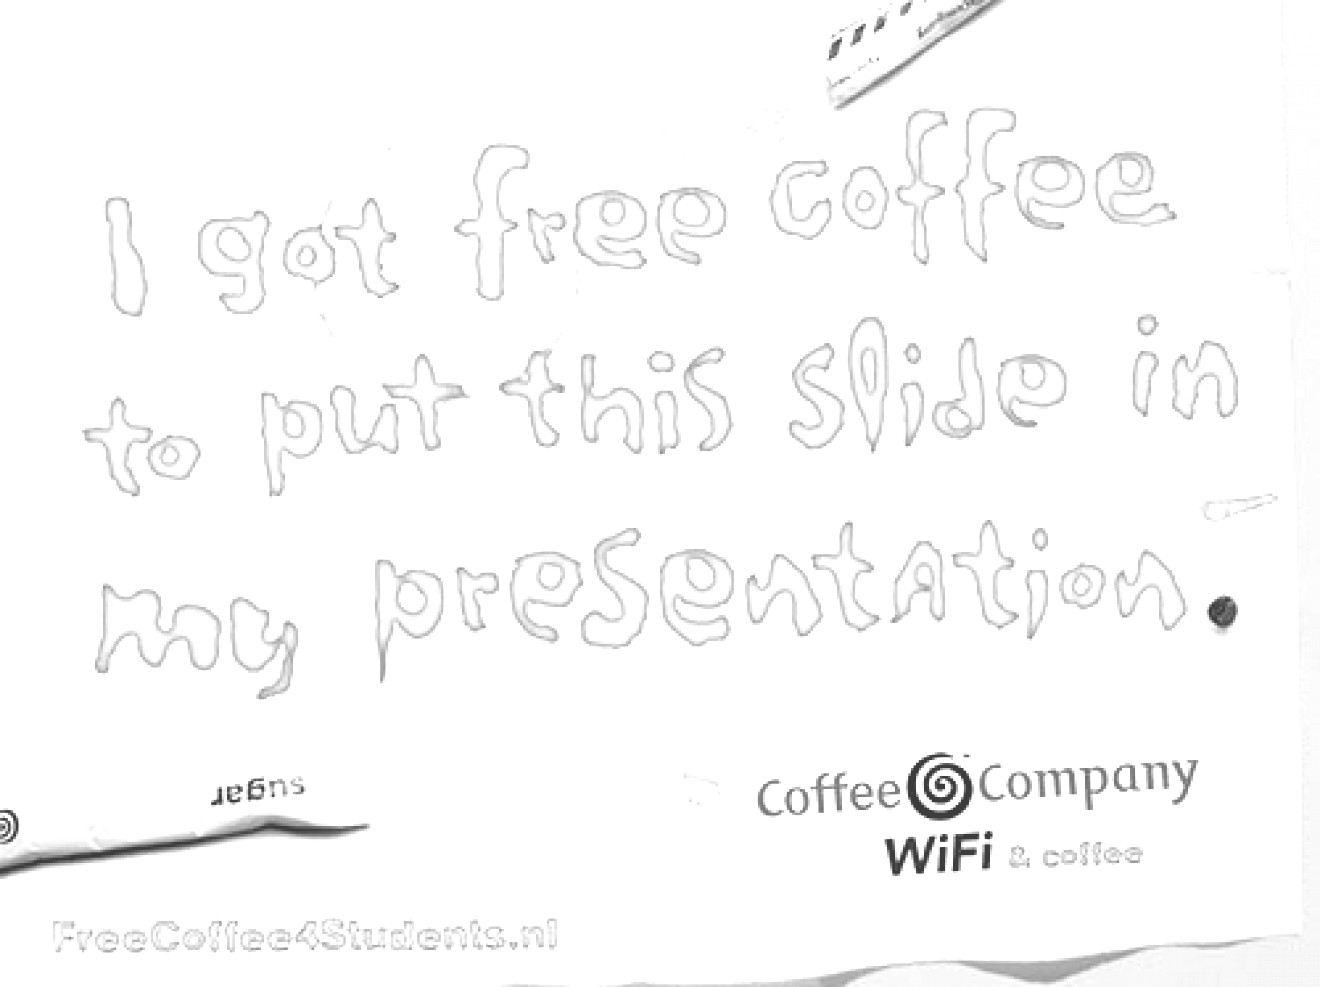 I got free coffee
to put this slide in
my presentation.
sugar
Coffee Company
WiFi & coffee
FreeCoffee4Students.nl